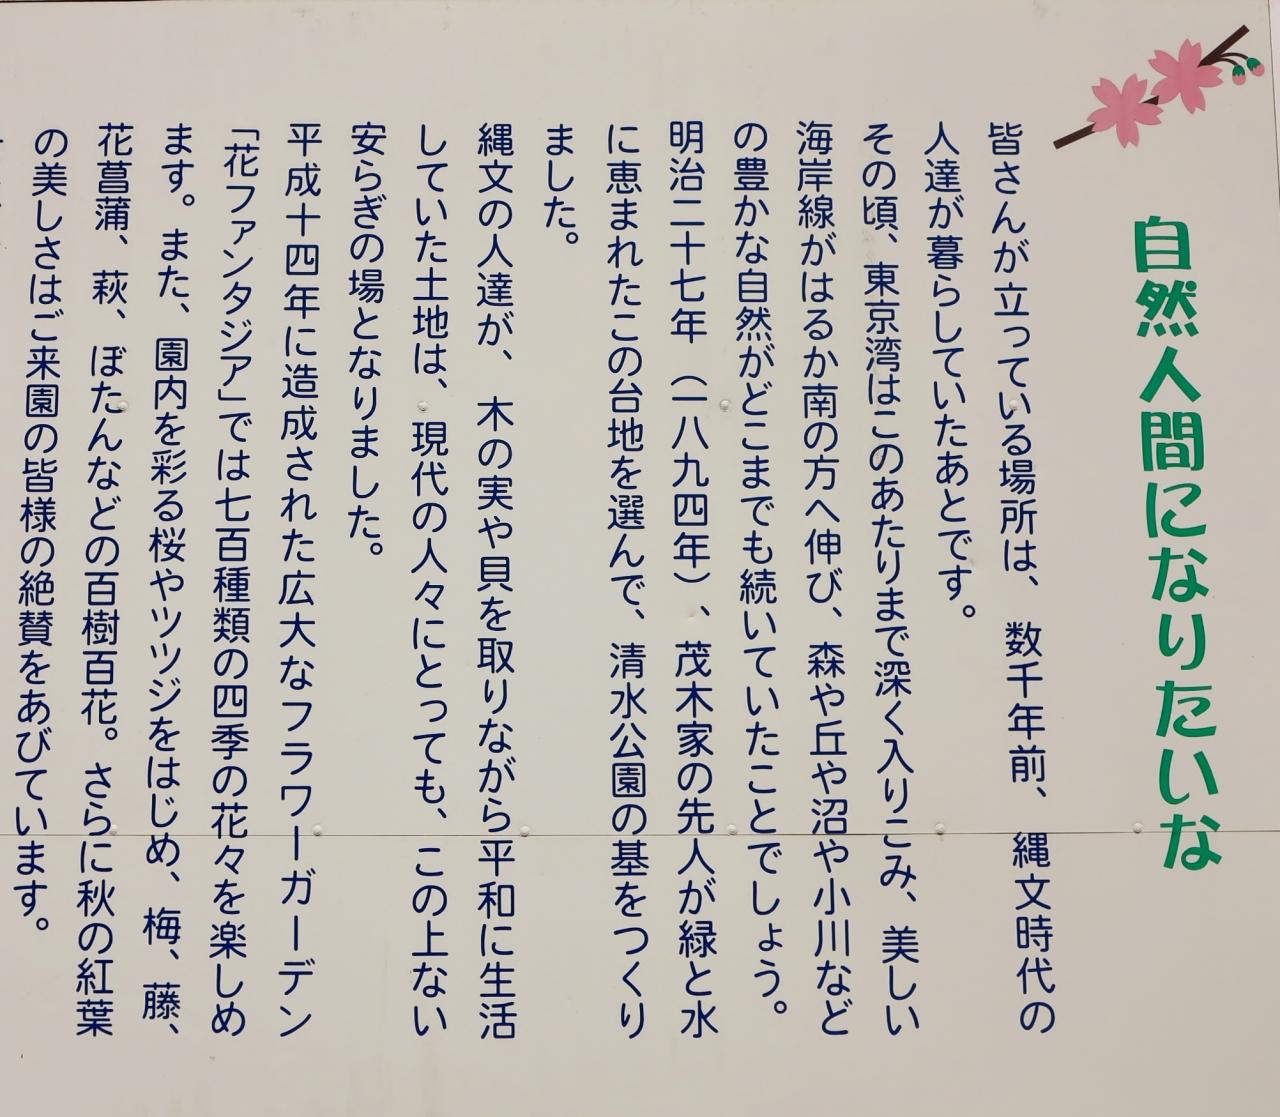 自然人間になりたいな
皆さんが立っている場所は、数千年前、縄文時代の
人達が暮らしていたあとです。
その頃、東京湾はこのあたりまで深く入りこみ、美しい
海岸線がはるか南の方へ伸び、森や丘や沼や小川など
の豊かな自然がどこまでも続いていたことでしょう。
明治二十七年（一八九四年）、茂木家の先人が緑と水
に恵まれたこの台地を選んで、清水公園の基をつくり
ました。
縄文の人達が、木の実や貝を取りながら平和に生活
していた土地は、現代の人々にとっても、この上ない
安らぎの場となりました。
平成十四年に造成された広大なフラワーガーデン
「花ファンタジア」では七百種類の四季の花々を楽しめ
ます。また、園内を彩る桜やツツジをはじめ、梅、藤、
花菖蒲、萩、ぼたんなどの百樹百花。さらに秋の紅葉
の美しさはご来園の皆様の絶賛をあびています。